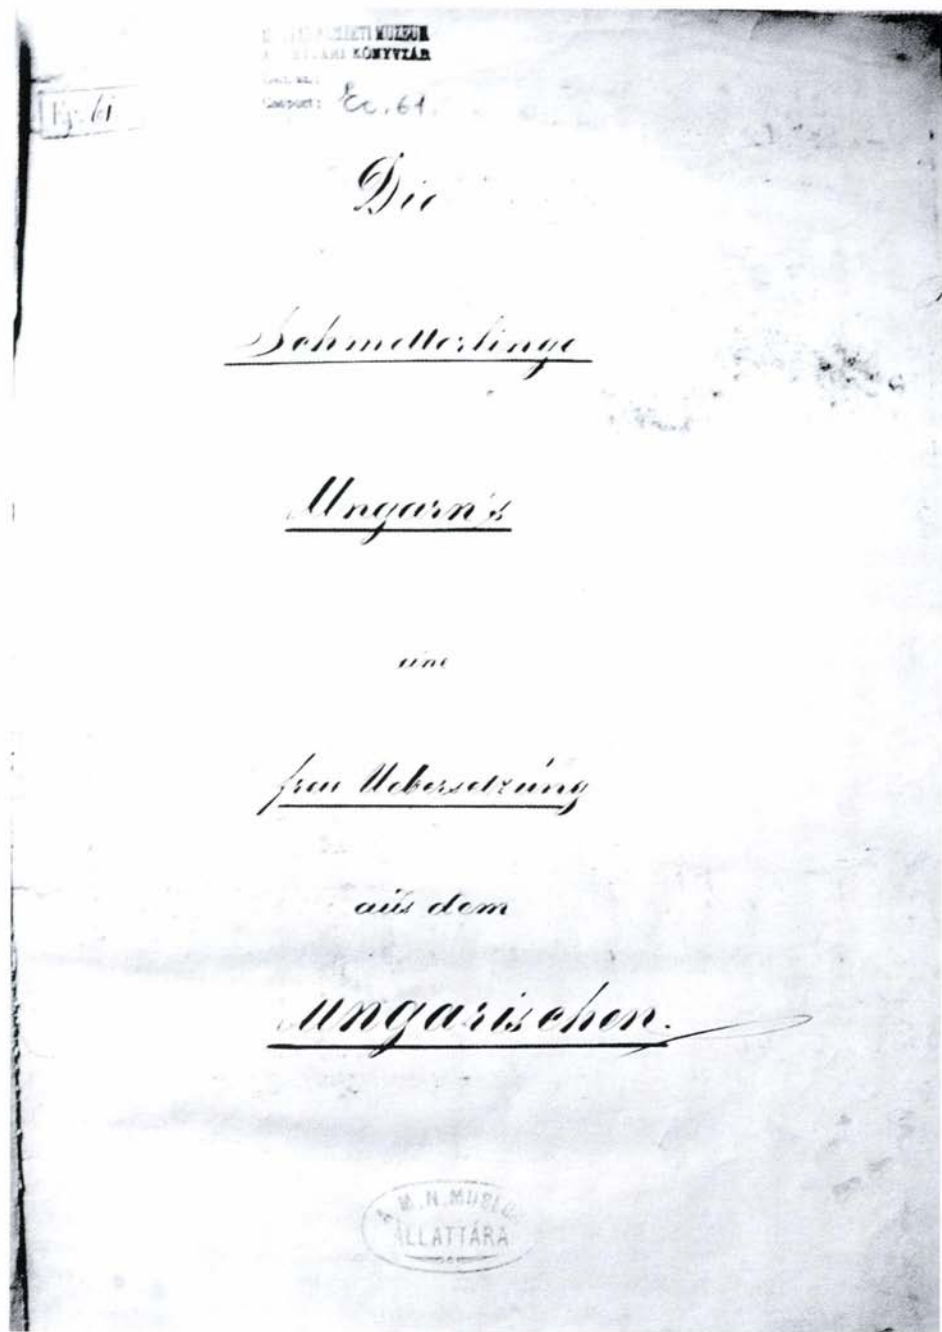 MUZEUM
KÖNYVTÁR
Ec. 61.
61
Die
Schmetterlinge
Ungarn's
eine
freie Uebersetzúng
aús dem
Ungarischen.
M. N.
ÁLLATTÁRA